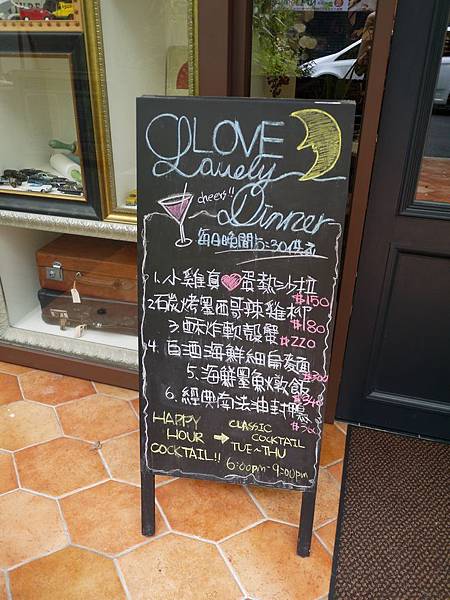 LOVE
Lovely
cheers!!
Dinner
每日晚間5:30供應
1.小雞真♥蛋熱沙拉
$150
2碳烤墨西哥辣雞柳
$180
3.酥炸軟殼蟹
$220
4.白酒海鮮細扁麵
$300
5.海鮮墨魚燉飯
$340
6.經典南法油封鴨
HAPPY
HOUR →
COCKTAIL!!
CLASSIC
COCKTAIL
TUE~THU
6:00pm-9:00pm